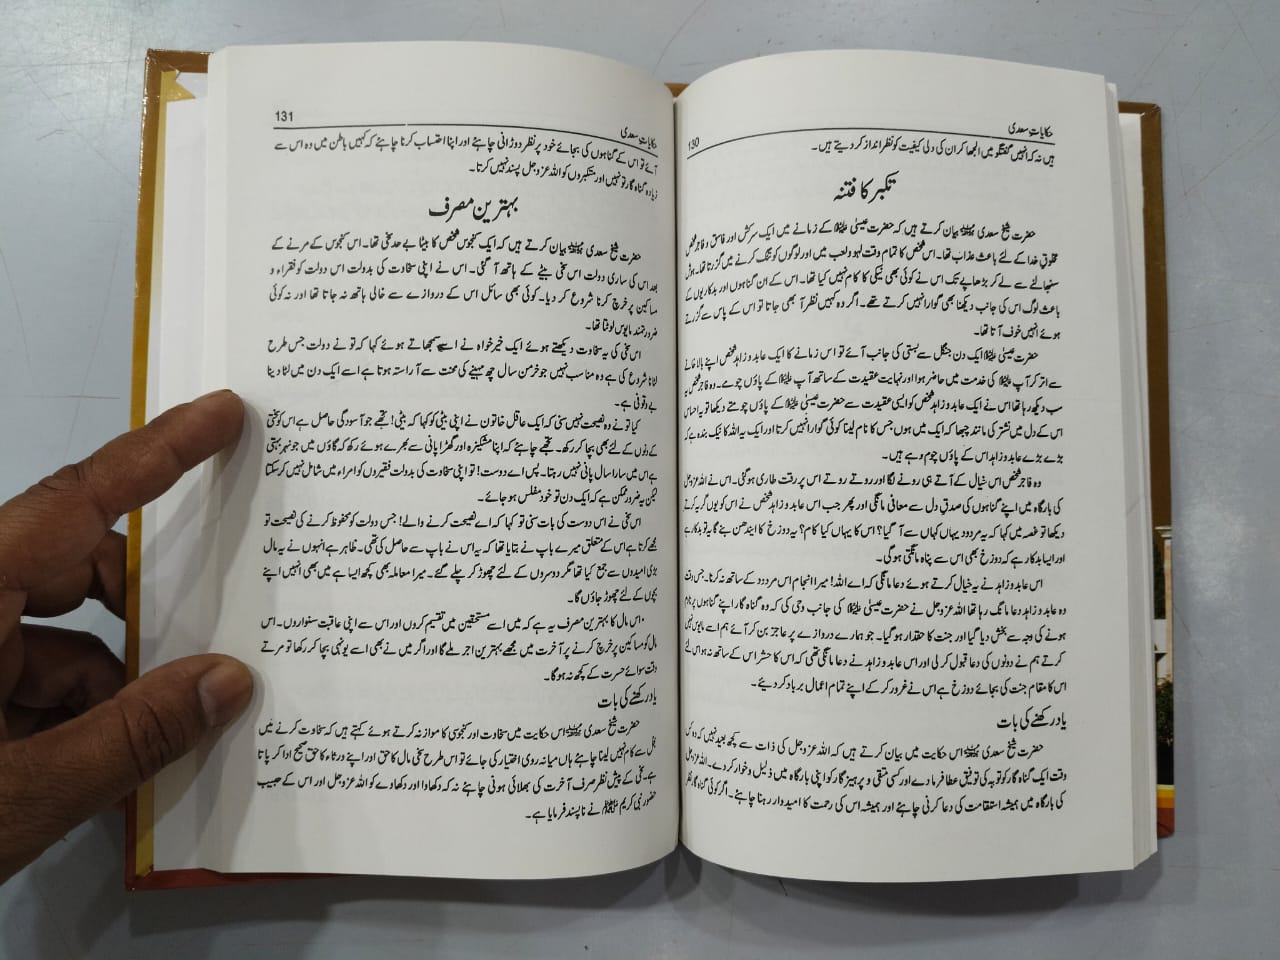 حکایاتِ سعدی
130
ہیں نہ کہ انہیں گفتگو میں الجھا کر ان کی دلی کیفیت کو نظر انداز کر دیتے ہیں۔
تکبر کا فتنہ
حضرت شیخ سعدی رحمۃ اللہ علیہ بیان کرتے ہیں کہ حضرت عیسیٰ علیہ السلام کے زمانے میں ایک سرکش اور فاسق و فاجر شخص
مخلوقِ خدا کے لئے باعث عذاب تھا۔ اس شخص کا تمام وقت لہو ولعب میں اور لوگوں کو تنگ کرنے میں گزرتا تھا۔ ہوش
سنبھالنے سے لے کر بڑھاپے تک اس نے کوئی بھی نیکی کا کام نہیں کیا تھا۔ اس کے ان گناہوں اور بدکاریوں کے
باعث لوگ اس کی جانب دیکھنا بھی گوارا نہیں کرتے تھے۔ اگر وہ کہیں نظر آ بھی جاتا تو اس کے پاس سے گزرتے
ہوئے انہیں خوف آتا تھا۔
حضرت عیسیٰ علیہ السلام ایک دن جنگل سے بستی کی جانب آئے تو اس زمانے کا ایک عابد و زاہد شخص اپنے بالا خانے
سے اتر کر آپ علیہ السلام کی خدمت میں حاضر ہوا اور نہایت عقیدت کے ساتھ آپ علیہ السلام کے پاؤں چومے۔ وہ فاجر شخص یہ
سب دیکھ رہا تھا اس نے ایک عابد و زاہد شخص کو ایسی عقیدت سے حضرت عیسیٰ علیہ السلام کے پاؤں چومتے دیکھا تو یہ احساس
اس کے دل میں نشتر کی مانند چبھا کہ ایک میں ہوں جس کا نام لینا کوئی گوارا نہیں کرتا اور ایک یہ اللہ کا نیک بندہ ہے کہ
بڑے بڑے عابد و زاہد اس کے پاؤں چوم رہے ہیں۔
وہ فاجر شخص اس خیال کے آتے ہی رونے لگا اور روتے روتے اس پر رقت طاری ہوگئی۔ اس نے اللہ عزوجل
کی بارگاہ میں اپنے گناہوں کی صدقِ دل سے معافی مانگی اور پھر جب اس عابد و زاہد شخص نے اس کو یوں گریہ کرتے
دیکھا تو غصہ میں کہا کہ یہ مردود یہاں کہاں سے آ گیا؟ اس کا یہاں کیا کام؟ یہ دوزخ کا ایندھن بنے گا یہ تو بدکار ہے
اور ایسا بدکار ہے کہ دوزخ بھی اس سے پناہ مانگتی ہوگی۔
اس عابد و زاہد نے یہ خیال کرتے ہوئے دعا مانگی کہ اے اللہ! میرا انجام اس مردود کے ساتھ نہ کرنا۔ جس وقت
وہ عابد و زاہد دعا مانگ رہا تھا اللہ عزوجل نے حضرت عیسیٰ علیہ السلام کی جانب وحی کی کہ وہ گناہ گار اپنے گناہوں پر نادم
ہونے کی وجہ سے بخش دیا گیا اور جنت کا حقدار ہو گیا۔ جو ہمارے دروازے پر عاجز بن کر آئے ہم اسے مایوس نہیں
کرتے ہم نے دونوں کی دعا قبول کر لی اور اس عابد و زاہد نے دعا مانگی تھی کہ اس کا حشر اس کے ساتھ نہ ہو اس لئے
اس کا مقام جنت کی بجائے دوزخ ہے اس نے غرور کر کے اپنے تمام اعمال برباد کر دیئے۔
یاد رکھنے کی بات
حضرت شیخ سعدی رحمۃ اللہ علیہ اس حکایت میں بیان کرتے ہیں کہ اللہ عزوجل کی ذات سے کچھ بعید نہیں کہ وہ کس
وقت ایک گناہ گار کو توبہ کی توفیق عطا فرما دے اور کسی متقی و پرہیز گار کو اپنی بارگاہ میں ذلیل و خوار کر دے۔ اللہ عزوجل
کی بارگاہ میں ہمیشہ استقامت کی دعا کرنی چاہئے اور ہمیشہ اس کی رحمت کا امیدوار رہنا چاہئے۔ اگر کوئی گناہ گار نظر
حکایاتِ سعدی
131
آئے تو اس کے گناہوں کی بجائے خود پر نظر دوڑانی چاہئے اور اپنا احتساب کرنا چاہئے کہ کہیں باطن میں وہ اس سے
زیادہ گناہ گار تو نہیں اور متکبروں کو اللہ عزوجل پسند نہیں کرتا۔
بہترین مصرف
حضرت شیخ سعدی رحمۃ اللہ علیہ بیان کرتے ہیں کہ ایک کنجوس شخص کا بیٹا بے حد سخی تھا۔ اس کنجوس کے مرنے کے
بعد اس کی ساری دولت اس سخی بیٹے کے ہاتھ آ گئی۔ اس نے اپنی سخاوت کی بدولت اس دولت کو فقراء و
مساکین پر خرچ کرنا شروع کر دیا۔ کوئی بھی سائل اس کے دروازے سے خالی ہاتھ نہ جاتا تھا اور نہ کوئی
ضرورتمند مایوس لوٹتا تھا۔
اس سخی کی یہ سخاوت دیکھتے ہوئے ایک خیر خواہ نے اسے سمجھاتے ہوئے کہا کہ تو نے دولت جس طرح
لٹانا شروع کی ہے وہ مناسب نہیں جو خرمن سال چھ مہینے کی محنت سے آراستہ ہوتا ہے اسے ایک دن میں لٹا دینا
بے وقوفی ہے۔
کیا تو نے وہ نصیحت نہیں سنی کہ ایک عاقل خاتون نے اپنی بیٹی کو کہا کہ بیٹی! تجھے جو آسودگی حاصل ہے اس کو سختی
کے دنوں کے لئے بھی بچا کر رکھ۔ تجھے چاہئے کہ اپنا مشکیزہ اور گھڑا پانی سے بھرے ہوئے رکھ کہ گاؤں میں جو نہر بہتی
ہے اس میں سارا سال پانی نہیں رہتا۔ پس اے دوست! تو اپنی سخاوت کی بدولت فقیروں کو امراء میں شامل نہیں کر سکتا
لیکن یہ ضرور ممکن ہے کہ ایک دن تو خود مفلس ہو جائے۔
اس سخی نے اس دوست کی بات سنی تو کہا کہ اے نصیحت کرنے والے! جس دولت کو محفوظ کرنے کی نصیحت تو
مجھے کرتا ہے اس کے متعلق میرے باپ نے بتایا تھا کہ یہ اس نے باپ سے حاصل کی تھی۔ ظاہر ہے انہوں نے یہ مال
بڑی امیدوں سے جمع کیا تھا مگر دوسروں کے لئے چھوڑ کر چلے گئے۔ میرا معاملہ بھی کچھ ایسا ہے میں بھی انہیں اپنے
بچوں کے لئے چھوڑ جاؤں گا۔
اس مال کا بہترین مصرف یہ ہے کہ میں اسے مستحقین میں تقسیم کروں اور اس سے اپنی عاقبت سنواروں۔ اس
مال کو مساکین پر خرچ کرنے پر آخرت میں مجھے بہترین اجر ملے گا اور اگر میں نے بھی اسے یونہی بچا کر رکھا تو مرتے
وقت سوائے حسرت کے کچھ نہ ہوگا۔
یاد رکھنے کی بات
حضرت شیخ سعدی رحمۃ اللہ علیہ اس حکایت میں سخاوت اور کنجوسی کا موازنہ کرتے ہوئے کہتے ہیں کہ سخاوت کرنے میں
بخل سے کام نہیں لینا چاہئے ہاں میانہ روی اختیار کی جائے تو اس طرح سخی مال کا حق اور اپنے ورثاء کا حق صحیح ادا کر پاتا
ہے۔ سخی کے پیش نظر صرف آخرت کی بھلائی ہونی چاہئے نہ کہ دکھاوا اور دکھاوے کو اللہ عزوجل اور اس کے حبیب
حضور نبی کریم ﷺ نے ناپسند فرمایا ہے۔